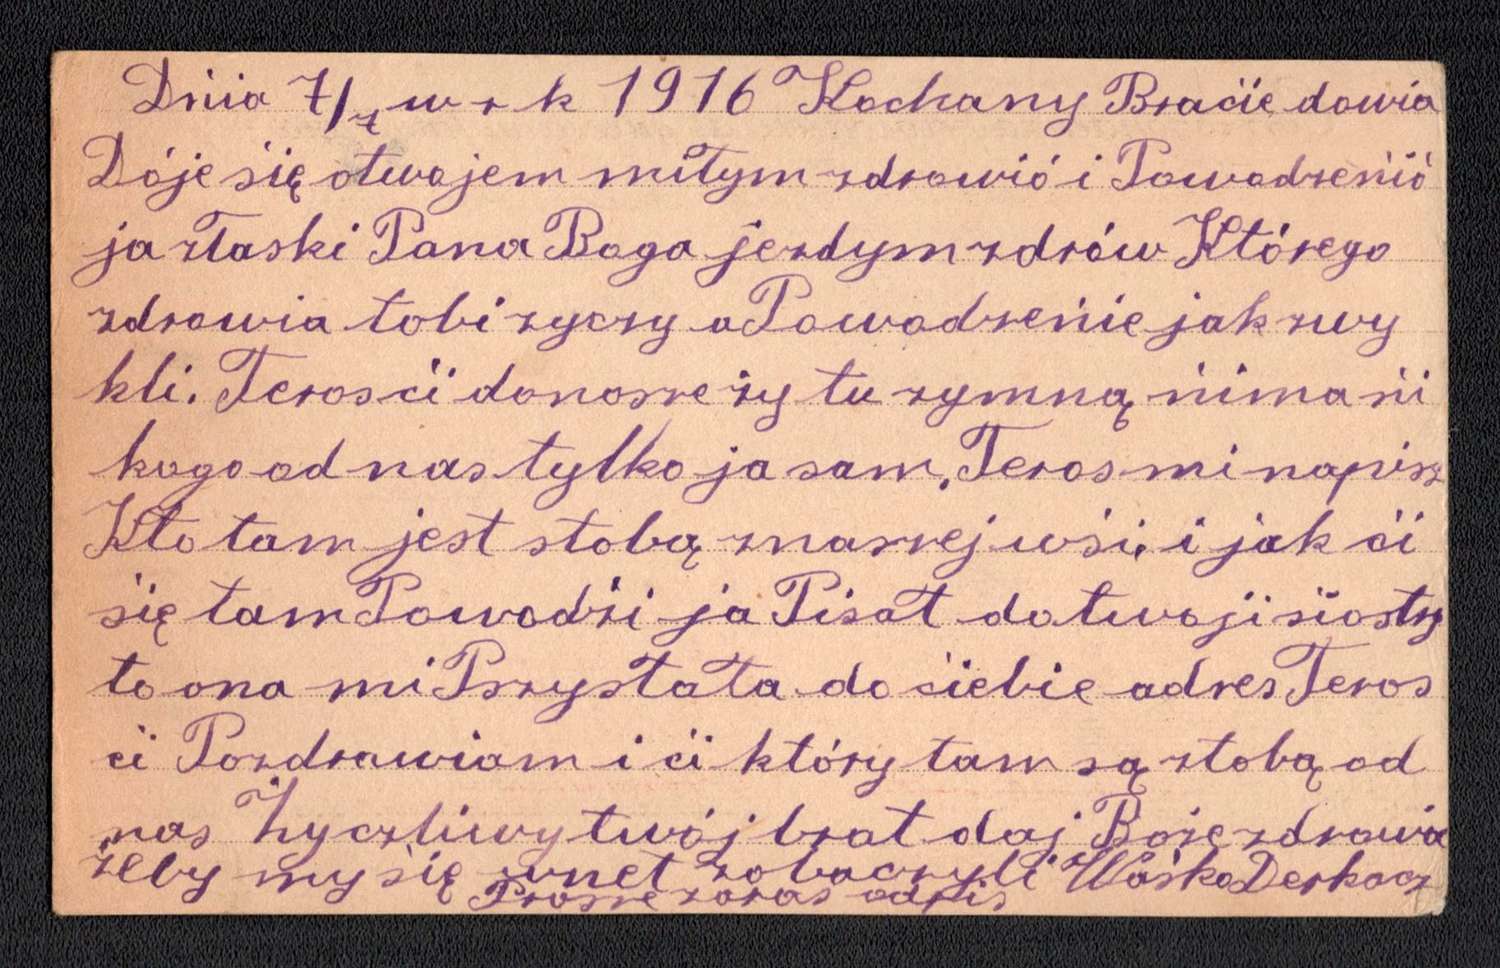 Dnia 7/7 w r k 1916 Kochany Bracie dowia
Dóje się otwojem miłym zdrowió i Powodzenió
ja złaski Pana Boga jezdym zdrów Którego
zdrowia tobi zyczy a Powodzenie jak zwy
kli. Teros ci donosze ży tu zymną nima ni
kogo od nas tylko ja sam, Teros mi napisz
Kto tam jest stobą znaszej wśi. i jak ci
się tam Powodźi ja Pisał do twoji siostry
to ona mi Przystała do ciebie adres Teros
ci Pozdrawiam i ci który tam są ztobą od
nas Życzliwy twój brat daj Boże zdrowia
żeby my się wnet zobaczyli Waśko Derkacz
Prosze zaras odpis